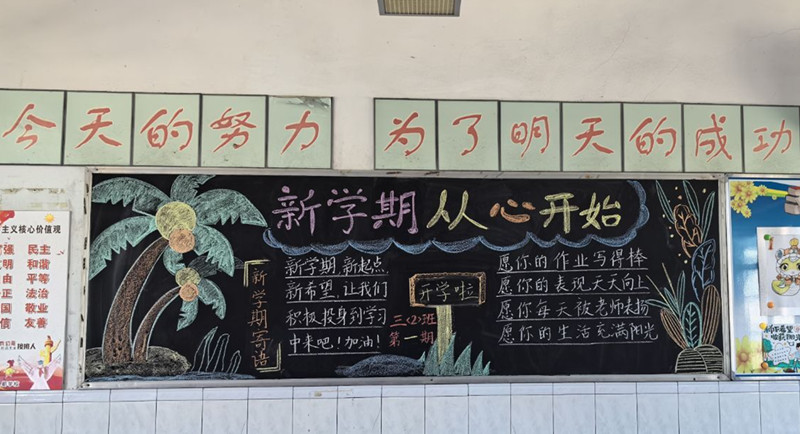 今天的努力
为了明天的成功
新学期从心开始
新学期寄语
新学期,新起点,
新希望,让我们
积极投身到学习
中来吧!加油!
开学啦
三<2>班
第一期
愿你的作业写得棒
愿你的表现天天向上
愿你每天被老师表扬
愿你的生活充满阳光
主义核心价值观
富强 民主
文明 和谐
自由 平等
公正 法治
爱国 敬业
诚信 友善